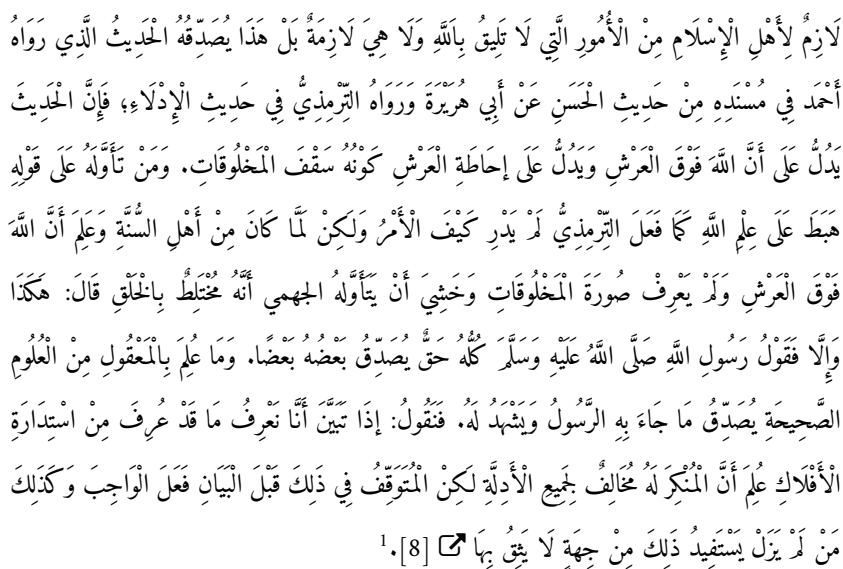 لَازِمٌ لِأَهْلِ الْإِسْلَامِ مِنْ الْأُمُورِ الَّتِي لَا تَلِيقُ بِاَللَّهِ وَلَا هِيَ لَازِمَةٌ بَلْ هَذَا يُصَدِّقُهُ الْحَدِيثُ الَّذِي رَوَاهُ
أَحْمَد فِي مُسْنَدِهِ مِنْ حَدِيثِ الْحَسَنِ عَنْ أَبِي هُرَيْرَةَ وَرَوَاهُ التِّرْمِذِيُّ فِي حَدِيثِ الْإِدْلَاءِ؛ فَإِنَّ الْحَدِيثَ
يَدُلُّ عَلَى أَنَّ اللَّهَ فَوْقَ الْعَرْشِ وَيَدُلُّ عَلَى إحَاطَةِ الْعَرْشِ كَوْنُهُ سَقْفَ الْمَخْلُوقَاتِ. وَمَنْ تَأَوَّلَهُ عَلَى قَوْلِهِ
هَبَطَ عَلَى عِلْمِ اللَّهِ كَمَا فَعَلَ التِّرْمِذِيُّ لَمْ يَدْرِ كَيْفَ الْأَمْرُ وَلَكِنْ لَمَّا كَانَ مِنْ أَهْلِ السُّنَّةِ وَعَلِمَ أَنَّ اللَّهَ
فَوْقَ الْعَرْشِ وَلَمْ يَعْرِفْ صُورَةَ الْمَخْلُوقَاتِ وَخَشِيَ أَنْ يَتَأَوَّلهُ الجهمي أَنَّهُ مُخْتَلِطٌ بِالْخَلْقِ قَالَ: هَكَذَا
وَإِلَّا فَقَوْلُ رَسُولِ اللَّهِ صَلَّى اللَّهُ عَلَيْهِ وَسَلَّمَ كُلُّهُ حَقٌّ يُصَدِّقُ بَعْضُهُ بَعْضًا. وَمَا عُلِمَ بِالْمَعْقُولِ مِنْ الْعُلُومِ
الصَّحِيحَةِ يُصَدِّقُ مَا جَاءَ بِهِ الرَّسُولُ وَيَشْهَدُ لَهُ. فَنَقُولُ: إذَا تَبَيَّنَ أَنَّا نَعْرِفُ مَا قَدْ عُرِفَ مِنْ اسْتِدَارَةِ
الْأَفْلَاكِ عُلِمَ أَنَّ الْمُنْكِرَ لَهُ مُخَالِفٌ لِجَمِيعِ الْأَدِلَّةِ لَكِنْ الْمُتَوَقِّفُ فِي ذَلِكَ قَبْلَ الْبَيَانِ فَعَلَ الْوَاجِبَ وَكَذَلِكَ
مَنْ لَمْ يَزَلْ يَسْتَفِيدُ ذَلِكَ مِنْ جِهَةٍ لَا يَثِقُ بِهَا [8].¹